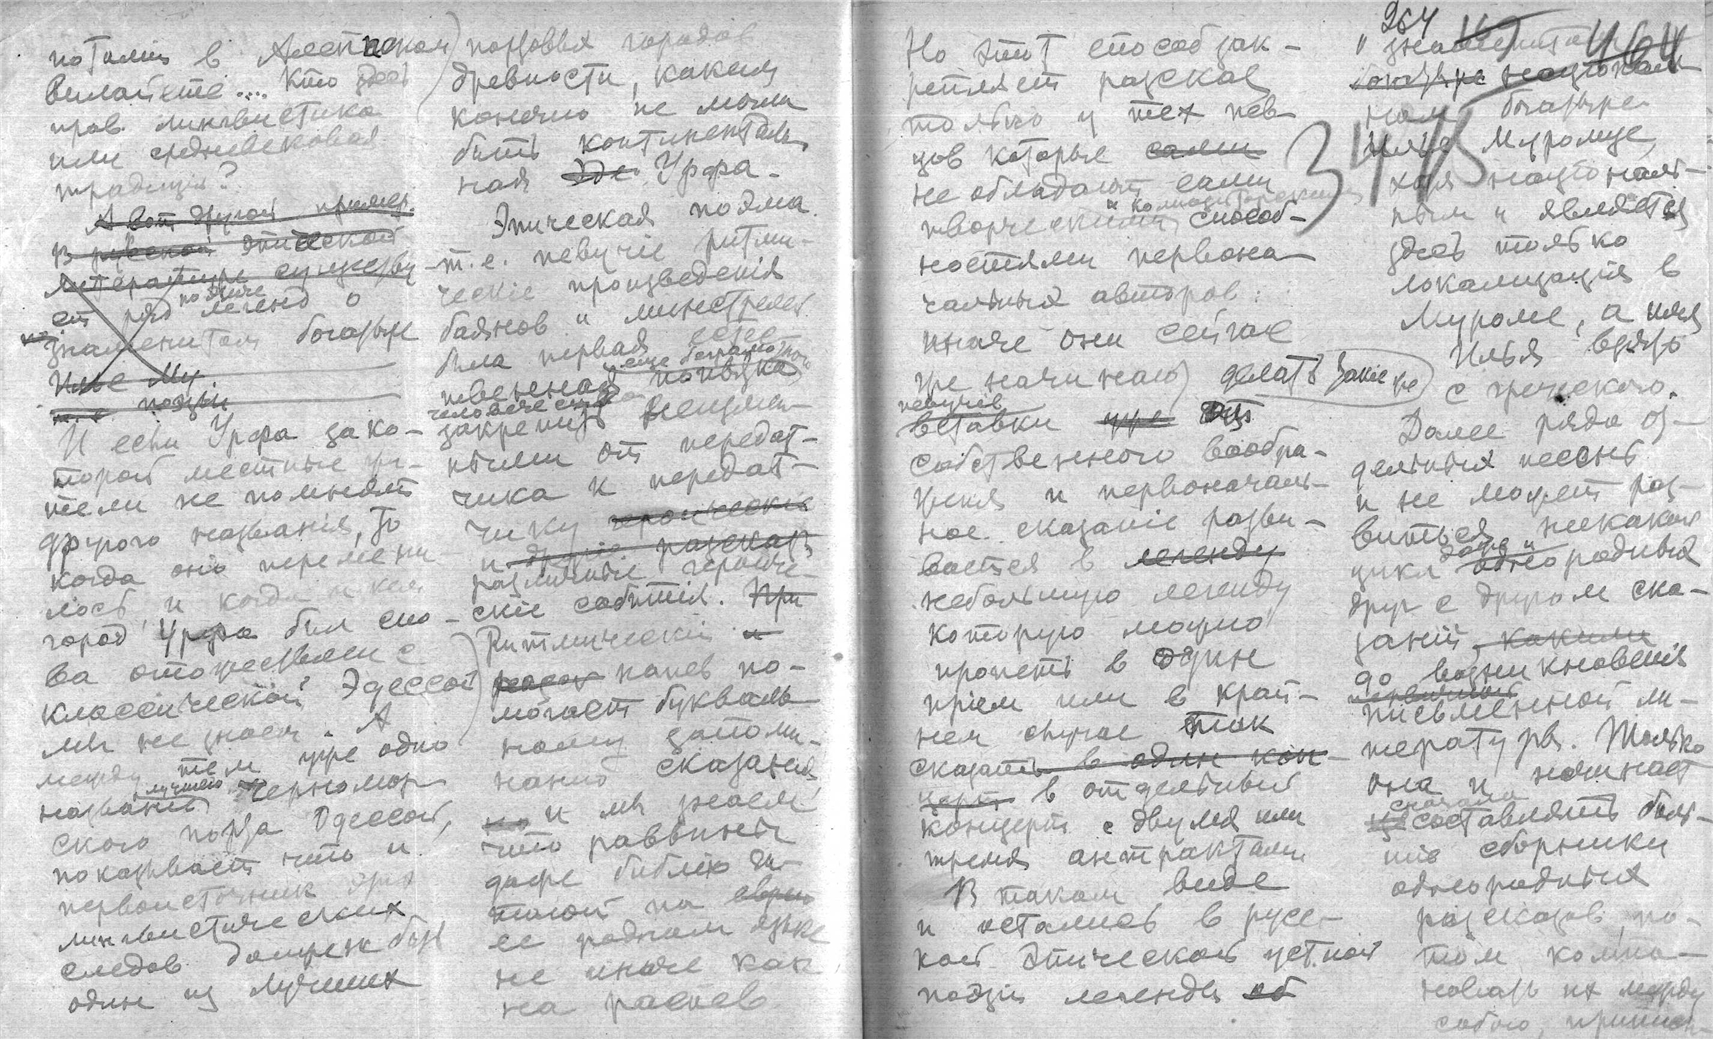 потомиъ в Алеппском
Вилайете.... Кто здесь
прав лингвистика
или средневековая
традиція?
А вот другой пример.
В русской эпической
литературе существу-
ет ряд поэтиче легенд о
знаменитом богатыре
Илье Му
т.е. поэзіи
И если Урфа за ко-
торой местные жи-
тели не помнят
другого названія, то
когда оно перемени-
лось и когда и кем
город Урфа был сно-
ва отожествлен с
классической Эдессой
мы не знаем. А
между тем уже одно
названіе лучшаго Черномор-
ского порта Одессой,
показывает что и
первоисточник этих
лингвистических
следов должен быть
один из лучших
портовых городов
древности, каким
конечно не могла
быть континенталь-
ная Эде Урфа.
Эпическая поэма
т.е. певучіе ритми-
ческіе произведенія
баянов и минестрелей
была первая
еще безграмотного
человечества
закрепить
ными от передат-
чика к передат-
чику героическія
и другіе разсказы
различные героиче-
скіе событія. При
Ритмическій и
напев по-
могает букваль-
ному запоми-
нанію сказанія
и мы знаем
что раввины
даже библію чи-
тают на
ее родном языке
не иначе как
на распев
Но этот способ зак-
репляет разсказ
только у тех пев-
цов которые сами
не обладают сами
творческими и композиторскими способ-
ностями первона-
чальных авторов:
иначе они сейчас
же начинают делать такіе же
певучіе
вставки уже из
собственного вообра-
женія и первоначаль-
ное сказаніе разви-
вается в легенду
небольшую легенду
которую можно
пропеть в один
прием или в край-
нем случае так
сказать в один кон-
церт в отдельный
концерт с двумя или
тремя антрактами
В таком виде
и остались в русс-
кой эпической устной
поэзіи легенды об
264
464
345
знаменитом
богатыре національ-
ном богатыре
Илье Муромце,
хотя національ-
ным и является
здесь только
локализація в
Муроме, а имя
Илья взято
с греческого.
Далее ряда от-
дельных песень
и не может раз-
виться никакой
цикл даже и однородных
друг с другом ска-
заній какими
до возникновенія
письменной ли-
тературы. Только
она и начинает
сначала
составлять боль-
шіе сборники
однородных
разсказов, по-
том компа-
новать их между
собою,